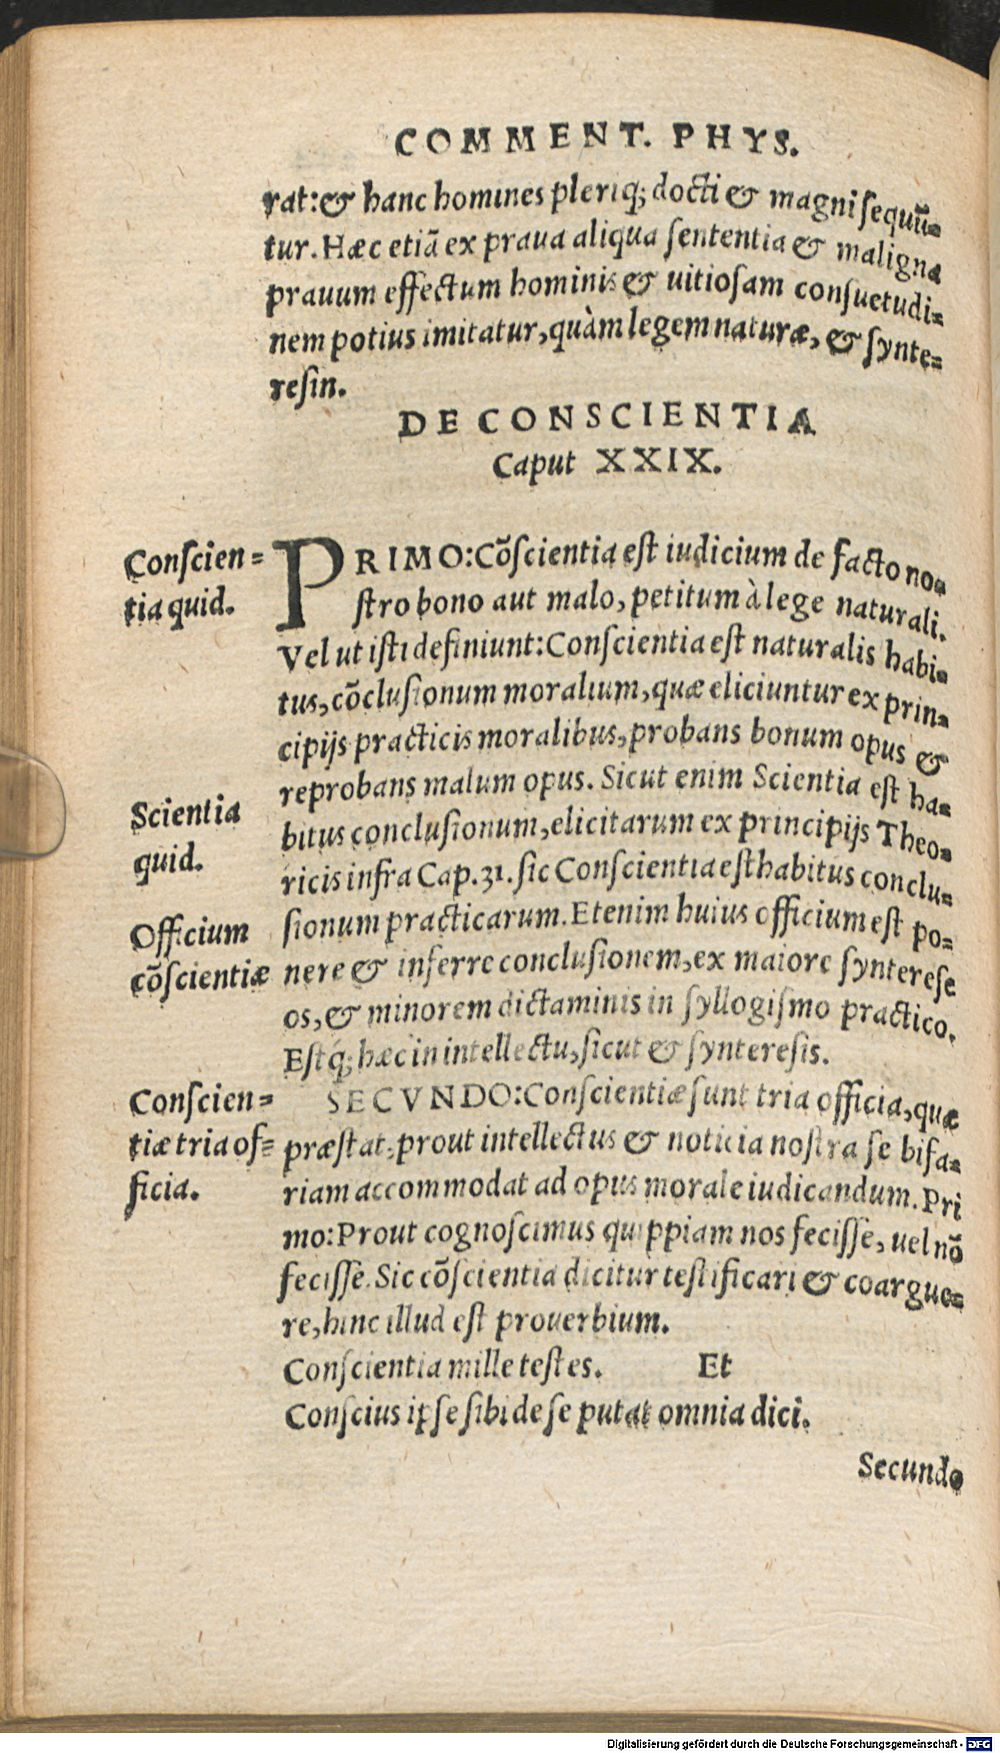 COMMENT. PHYS.
rat: & hanc homines pleriq; docti & magni sequũ=
tur. Hæc etiã ex praua aliqua sententia & maligna
prauum effectum hominis & uitiosam consuetudi=
nem potius imitatur, quàm legem naturæ, & synte=
resin.
DE CONSCIENTIA
Caput XXIX.
Conscien=
tia quid.
PRIMO: Cõscientia est iudicium de facto no=
stro bono aut malo, petitum à lege naturali.
Vel ut isti definiunt: Conscientia est naturalis habi=
tus, cõclusionum moralium, quæ eliciuntur ex prin=
cipijs practicis moralibus, probans bonum opus &
reprobans malum opus. Sicut enim Scientia est ha=
Scientia
quid.
bitus conclusionum, elicitarum ex principijs Theo=
ricis infra Cap. 31. sic Conscientia est habitus conclu=
Officium
cõscientiæ
sionum practicarum. Etenim huius officium est po=
nere & inferre conclusionem, ex maiore synterese
os, & minorem dictaminis in syllogismo practico.
Estq́; hæc in intellectu, sicut & synteresis.
Conscien=
tiæ tria of=
ficia.
SECVNDO: Conscientiæ sunt tria officia, quæ
præstat, prout intellectus & noticia nostra se bifa=
riam accommodat ad opus morale iudicandum. Pri
mo: Prout cognoscimus quippiam nos fecisse, uel nõ
fecisse. Sic cõscientia dicitur testificari & coargue=
re, hinc illud est prouerbium.
Conscientia mille testes. Et
Conscius ipse sibi de se putat omnia dici.
Secundo
Digitalisierung gefördert durch die Deutsche Forschungsgemeinschaft - DFG